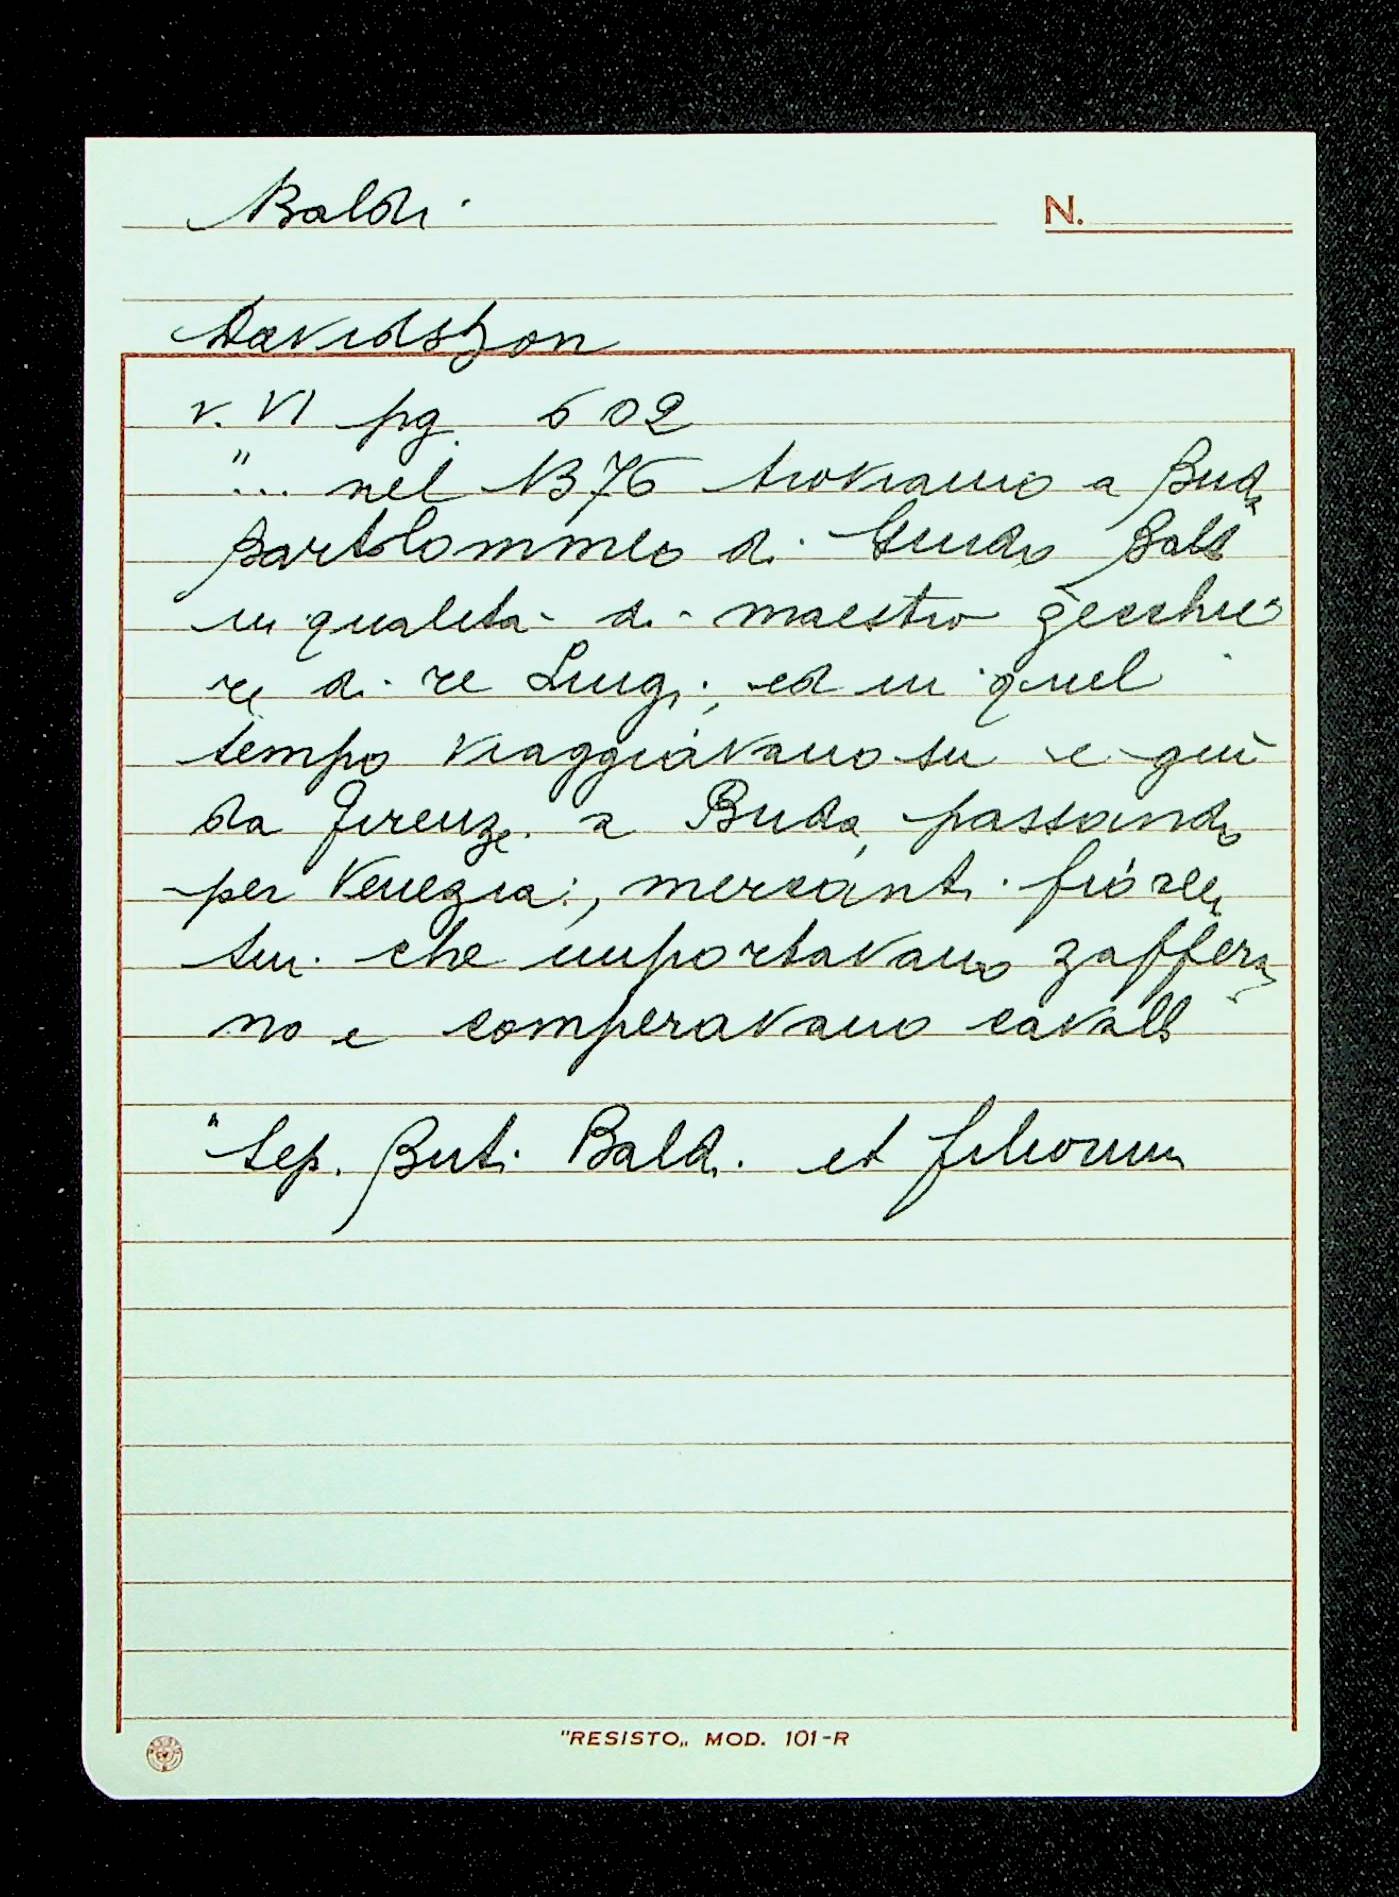 Baldi
N.
Davidszon
v. VI pg. 602
"... nel 1376 troviamo a Buda
Bartolommeo di Guido Baldi
in qualità di maestro zecchie
re di re Luigi, ed in quel
tempo viaggiavano su e giù
da Firenze a Buda, passando
per Venezia, mercanti fioren
tini che importavano zaffera
no e comperavano cavalli
"Sep. Buti Baldi et filiorum
"RESISTO„ MOD. 101-R